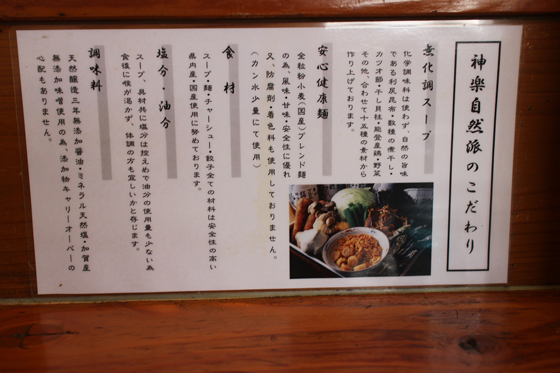 神楽自然派のこだわり
無化調スープ
化学調味料は使わず、自然の旨味
である利尻昆布・数種の煮干し・
カツオ節・干し貝柱・能登産鶏・野菜
その他、合わせて十五種の素材から
作り上げております。
安心健康麺
全粒粉小麦(国産)ブレンド麺
の為、風味・甘味・安全性に優れ
又、防腐剤・着色料も使用しておりません。
(カン水少量にて使用)
食材
スープ・麺・チャーシュー・餃子全ての材料は安全性の高い
県内産・国産使用に努めております。
塩分・油分
スープ、具材共に塩分は控えめで油分の使用量も少ない為
食後に喉が渇かず、体調の方も宜しいかと存じます。
調味料
天然醸造三年無添加醤油・ミネラル天然塩・加賀産
無添加味噌使用の為、添加物キャリーオーバーの
心配もありません。